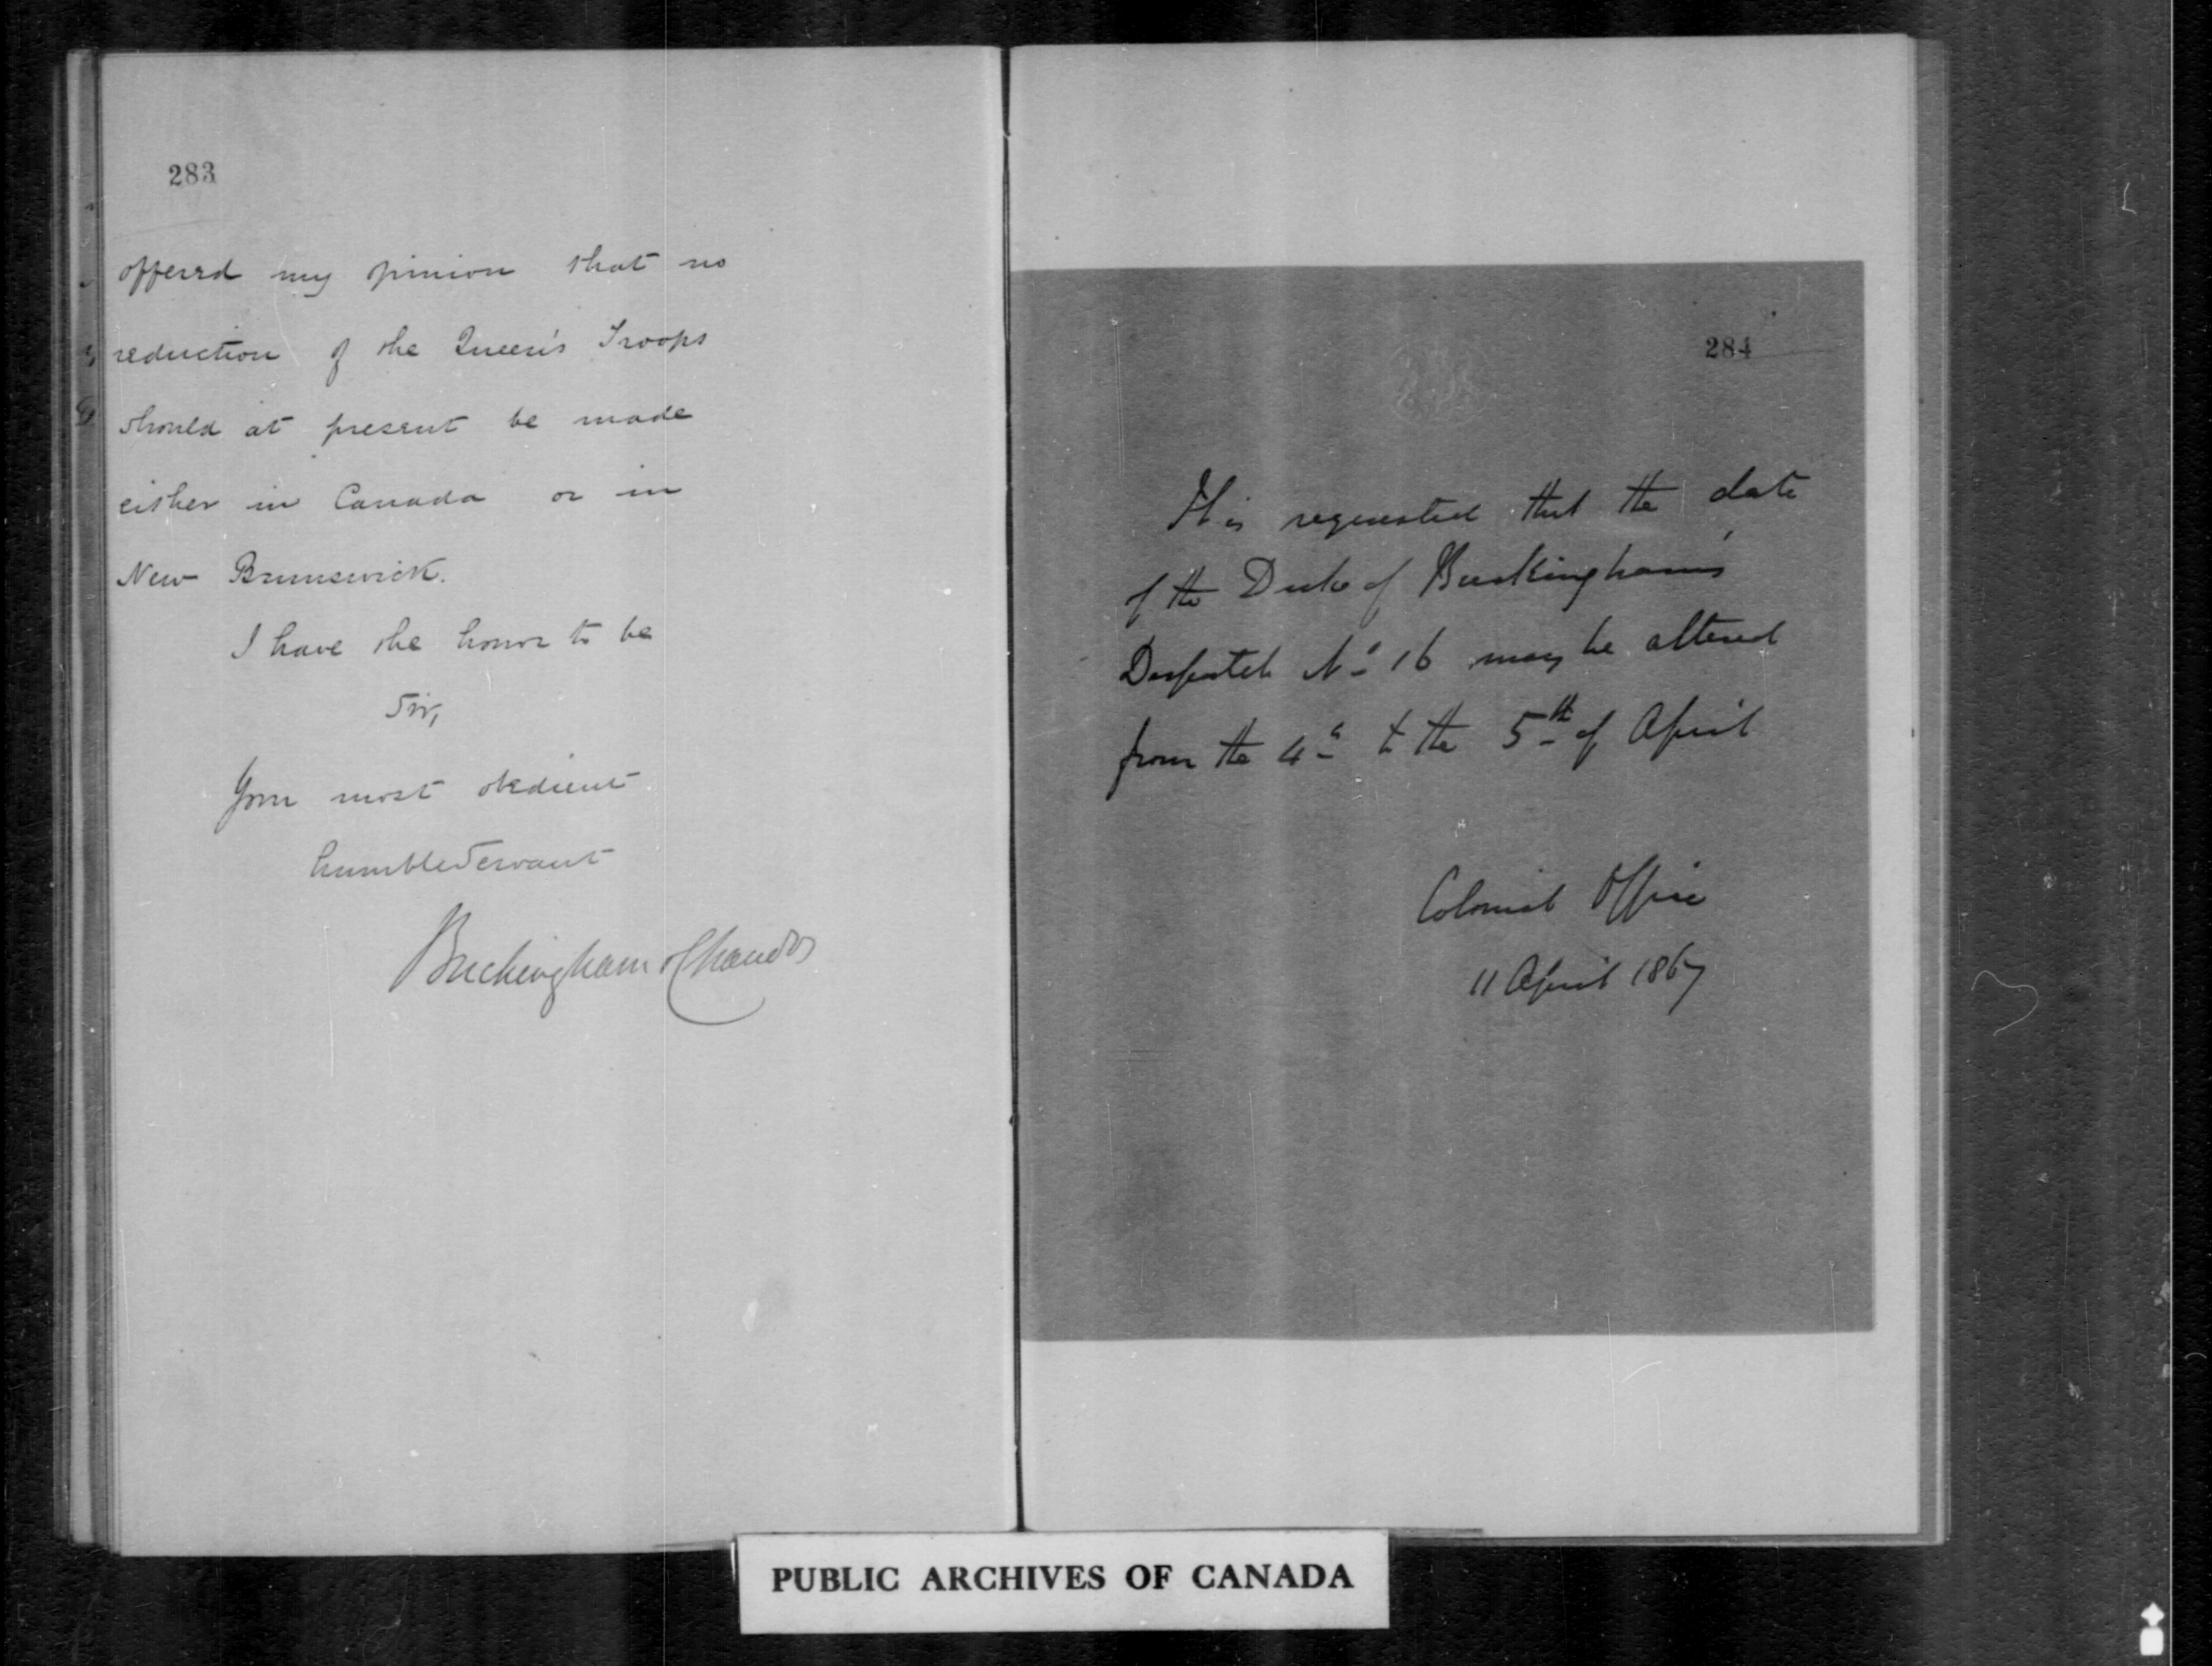 283
offered my opinion that no
reduction of the Queen's Troops
should at present be made
either in Canada or in
New Brunswick.
I have the honor to be
Sir,
Your most obedient
humble Servant
Buckingham & Chandos
284
It is requested that the date
of the Duke of Buckingham's
Despatch No 16 may be altered
from the 4th to the 5th of April
Colonial Office
11 April 1867
PUBLIC ARCHIVES OF CANADA